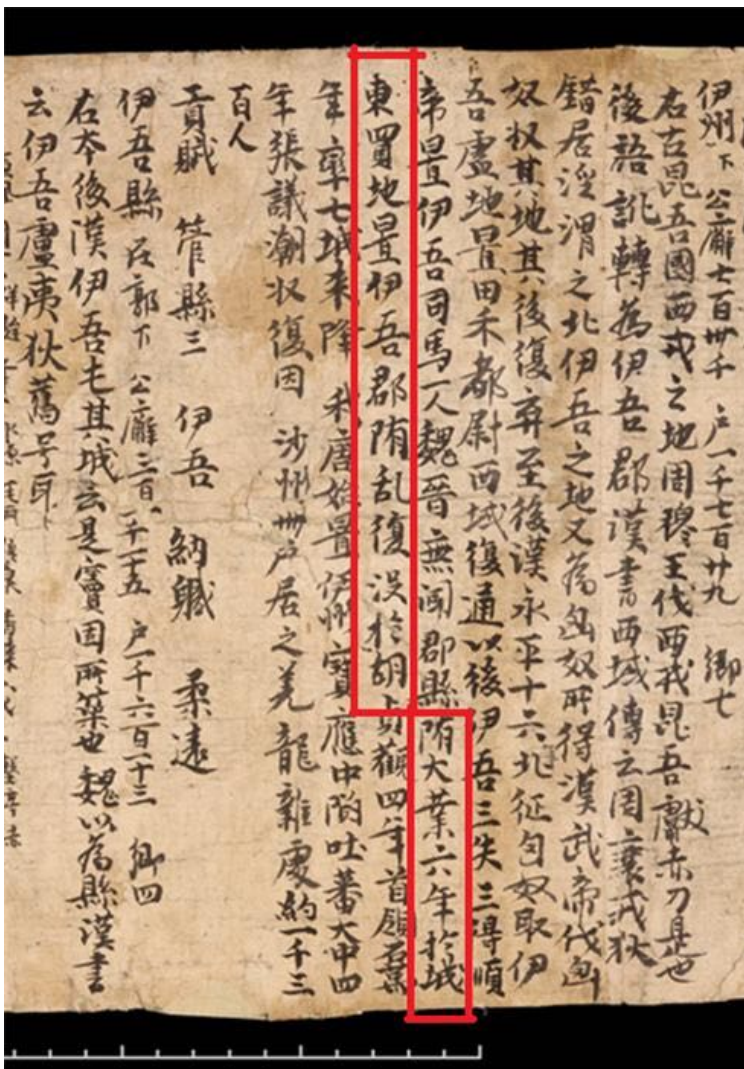 伊州下 公廨七百卅千 户一千七百廿九 鄉七
右古昆吾國西戎之地周穆王伐西戎昆吾獻赤刀是也
後語訛轉為伊吾郡漢書西域傳云周衰戎狄
錯居涇渭之北伊吾之地又為匈奴所得漢武帝伐匈
奴收其地其後復弃至後漢永平十六北征匈奴取伊
吾盧地置田禾都尉西域復通以後伊吾三失三得順
帝置伊吾司馬一人魏晉無聞郡縣隋大業六年於城
東買地置伊吾郡隋乱復没於胡貞觀四年首領石萬
年率七城来降我唐始置伊州寶應中陷吐蕃大中四
年張議潮收復因沙州卌户居之羌龍雜處約一千三
百人
貢賦 管縣三 伊吾 納職 柔遠
伊吾縣在郭下 公廨三百一千一十五 户一千六百一十三 鄉四
右本後漢伊吾屯其城云是竇固所築也魏以為縣漢書
云伊吾盧夷狄舊号耳